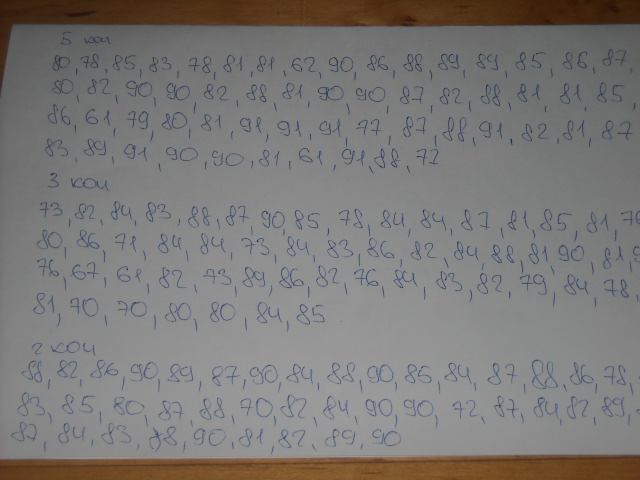 5 кои
80, 78, 85, 83, 78, 81, 81, 62, 90, 86, 88, 89, 89, 85, 86, 87,
80, 82, 90, 90, 82, 88, 81, 90, 90, 87, 82, 88, 81, 81, 85
86, 61, 79, 80, 81, 91, 91, 91, 77, 87, 88, 91, 82, 81, 87
83, 89, 91, 90, 90, 81, 61, 91, 88, 72
3 кои
73, 82, 84, 83, 88, 87, 90, 85, 78, 84, 84, 87, 81, 85, 81,
80, 86, 71, 84, 84, 73, 84, 83, 86, 82, 84, 88, 81, 90, 81,
76, 67, 61, 82, 73, 89, 86, 82, 76, 84, 83, 82, 79, 84, 78,
81, 70, 70, 80, 80, 84, 85
2 кои
88, 82, 86, 90, 89, 87, 90, 84, 88, 90, 85, 84, 87, 88, 86, 78,
83, 85, 80, 87, 88, 70, 82, 84, 90, 90, 72, 87, 84, 82, 89,
87, 84, 83, 88, 90, 81, 82, 89, 90